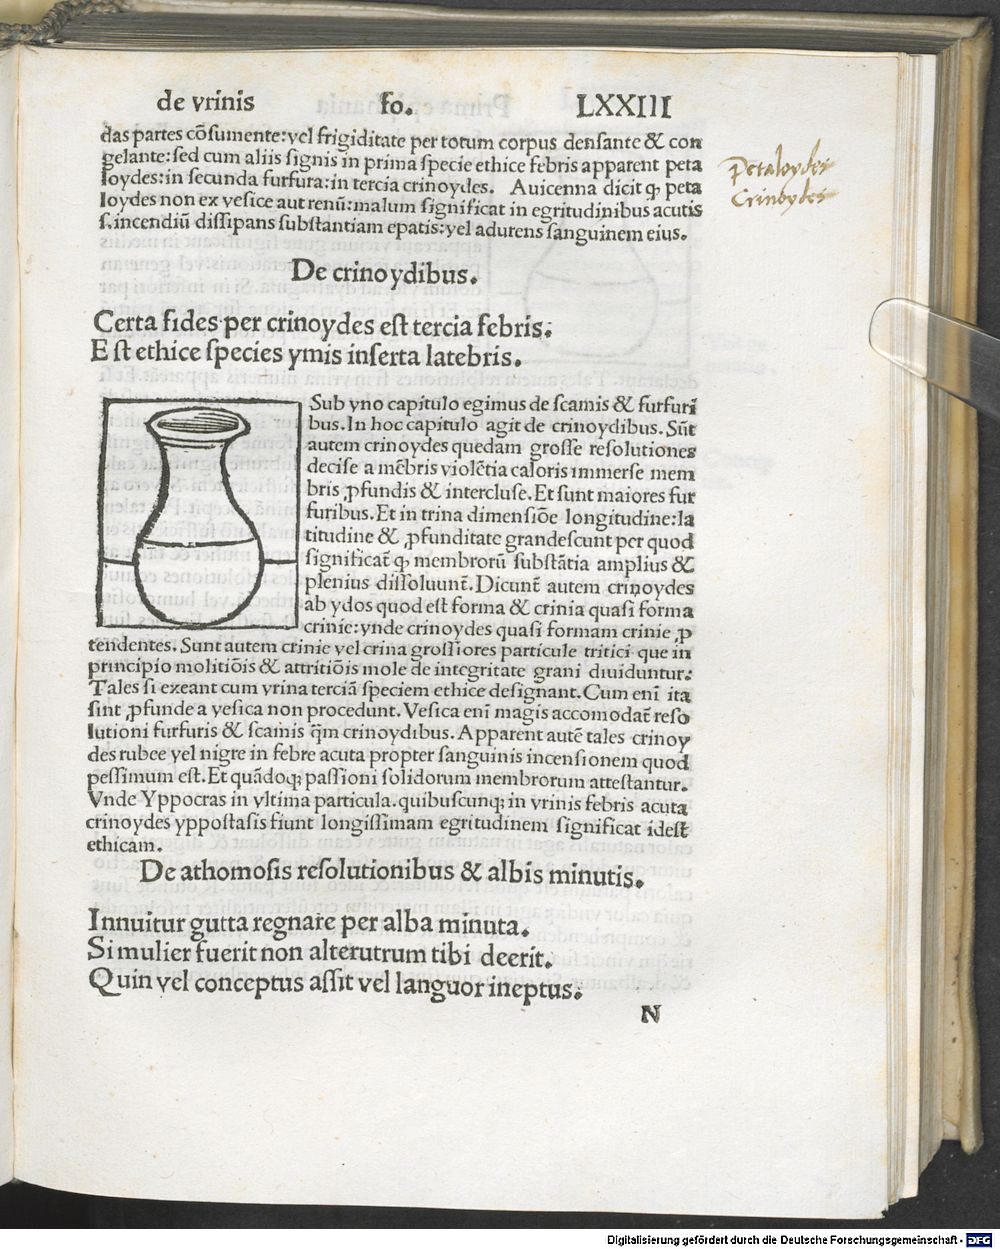 de vrinis fo. LXXIII
das partes cõsumente: vel frigiditate per totum corpus densante & con
gelante: sed cum aliis signis in prima specie ethice febris apparent peta
loydes: in secunda furfura: in tercia crinoydes. Auicenna dicit ꝙ peta
loydes non ex vesice aut renũ: malum significat in egritudinibus acutis
s. incendiũ dissipans substantiam epatis: vel adurens sanguinem eius.
Petaloydes
Crinoydes
De crinoydibus.
Certa fides per crinoydes est tercia febris:
Est ethice species ymis inserta latebris.
Sub vno capitulo egimus de scamis & furfuri
bus. In hoc capitulo agit de crinoydibus. Sũt
autem crinoydes quedam grosse resolutiones
decise a mẽbris violẽtia caloris immerse mem
bris ꝓfundis & intercluse. Et sunt maiores fur
furibus. Et in trina dimensiõe longitudine: la
titudine & ꝓfunditate grandescunt per quod
significat̃ ꝙ membrorũ substãtia amplius &
plenius dissoluunt̃. Dicunt̃ autem crinoydes
ab ydos quod est forma & crinia quasi forma
crinie: vnde crinoydes quasi formam crinie ꝓ
tendentes. Sunt autem crinie vel crina grossiores particule tritici que in
principio molitiõis & attritiõis mole de integritate grani diuiduntur:
Tales si exeant cum vrina terciã speciem ethice designant. Cum enĩ ita
sint ꝓfunde a vesica non procedunt. Vesica enĩ magis accomodat̃ reso
lutioni furfuris & scamis q̃m crinoydibus. Apparent autẽ tales crinoy
des rubee vel nigre in febre acuta propter sanguinis incensionem quod
pessimum est. Et quãdoqꝫ passioni solidorum membrorum attestantur.
Vnde Yppocras in vltima particula. quibuscunqꝫ in vrinis febris acuta
crinoydes yppostasis fiunt longissimam egritudinem significat idest
ethicam.
De athomosis resolutionibus & albis minutis.
Innuitur gutta regnare per alba minuta.
Si mulier fuerit non alterutrum tibi deerit.
Quin vel conceptus assit vel languor ineptus:
N
Digitalisierung gefördert durch die Deutsche Forschungsgemeinschaft - DFG